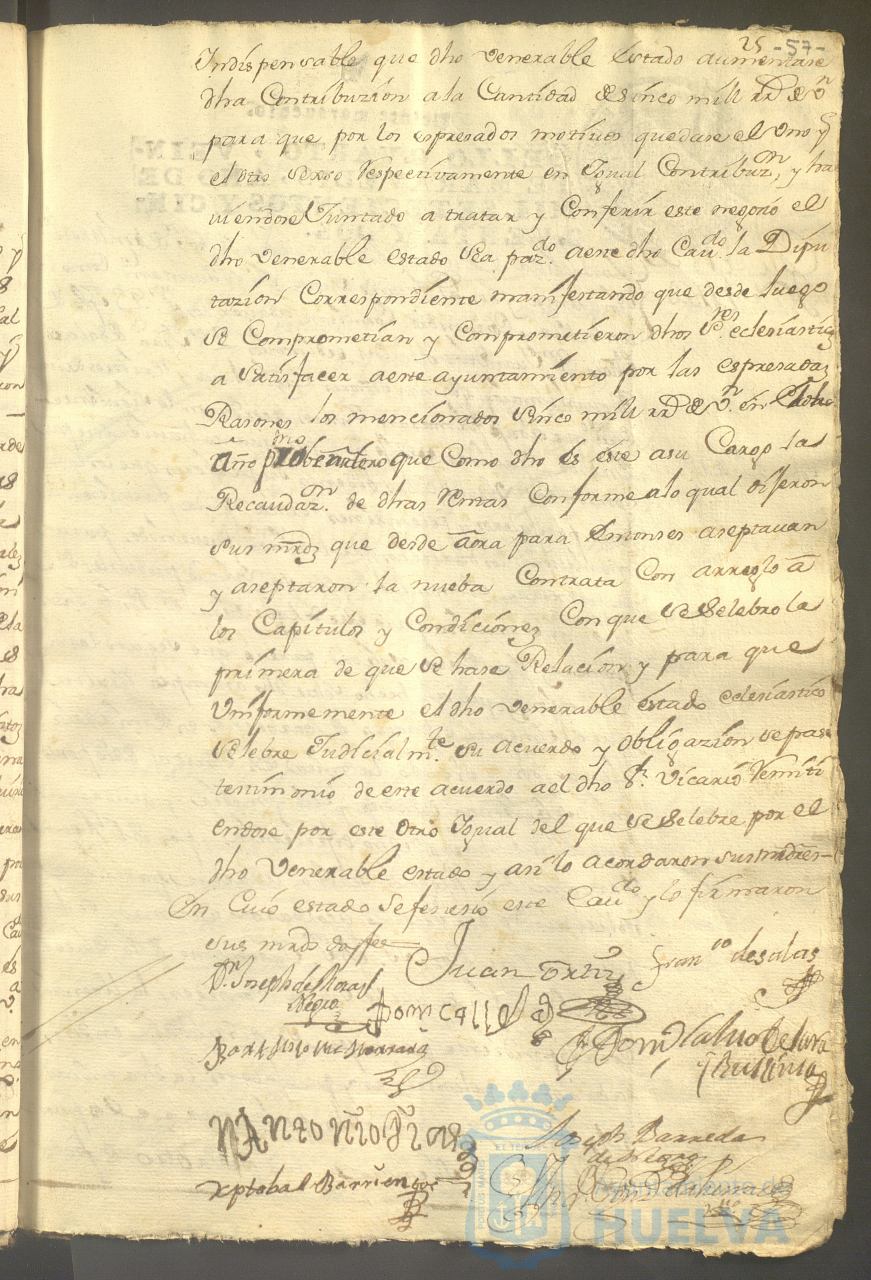 25 -57-
Indispensable que dho venerable Estado aumentase
dha Contribuzion a la Cantidad de sinco mill rrs de von
para que por los espresados motivos quedase el Uno y
el otro Respectivamente en Igual Contribuzn, y ha
viendose Juntado a tratar y Conferir este negozio el
dho Venerable estado a este dho Cavdo la Dipu
tazion Correspondiente manifestando que desde luego
se Comprometian y Comprometieron dhos Sres eclesiasticos
a Satisfacer a este ayuntamiento por las espresadas
Rasones los mencionados sinco mill rrs de von en
año que Como dho es este a su Cargo la
Recaudazn de dhas Rentas Conforme a lo qual dijeron
sus mrds que desde aora para Entonses aseptavan
y aseptaron la nueba Contrata Con arreglo a
los Capitulos y Condiciones Con que se Selebro la
primera de que se hase Relacion y para que
Uniformemente el dho venerable estado eclesiastico
Selebre Judicialmte su acuerdo y obligazion se pase
testimonio de este acuerdo a el dho Sr Vicario Remiti
endose por este otro Igual del que se Selebre por el
dho Venerable estado y asi lo acordaron sus mrdes
En Cuio estado se fenesio este Cavdo y lo firmaron
sus mrds doi fee
Juan Franco de salas
Dn Joseph de
Domn Calvo de Lara
Barreda
Xptobal Barrientos
Ayuntamiento de
HUELVA